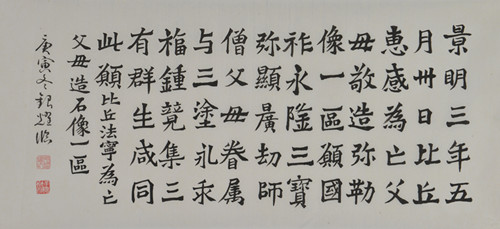 景明三年五
月卅日比丘
惠感為亡父
母敬造弥勒
像一區願國
祚永隆三寶
弥顯曠劫師
僧父母眷属
与三塗永乖
福鍾競集三
有群生咸同
此願比丘法寧為亡
父母造石像一區
庚寅冬臨